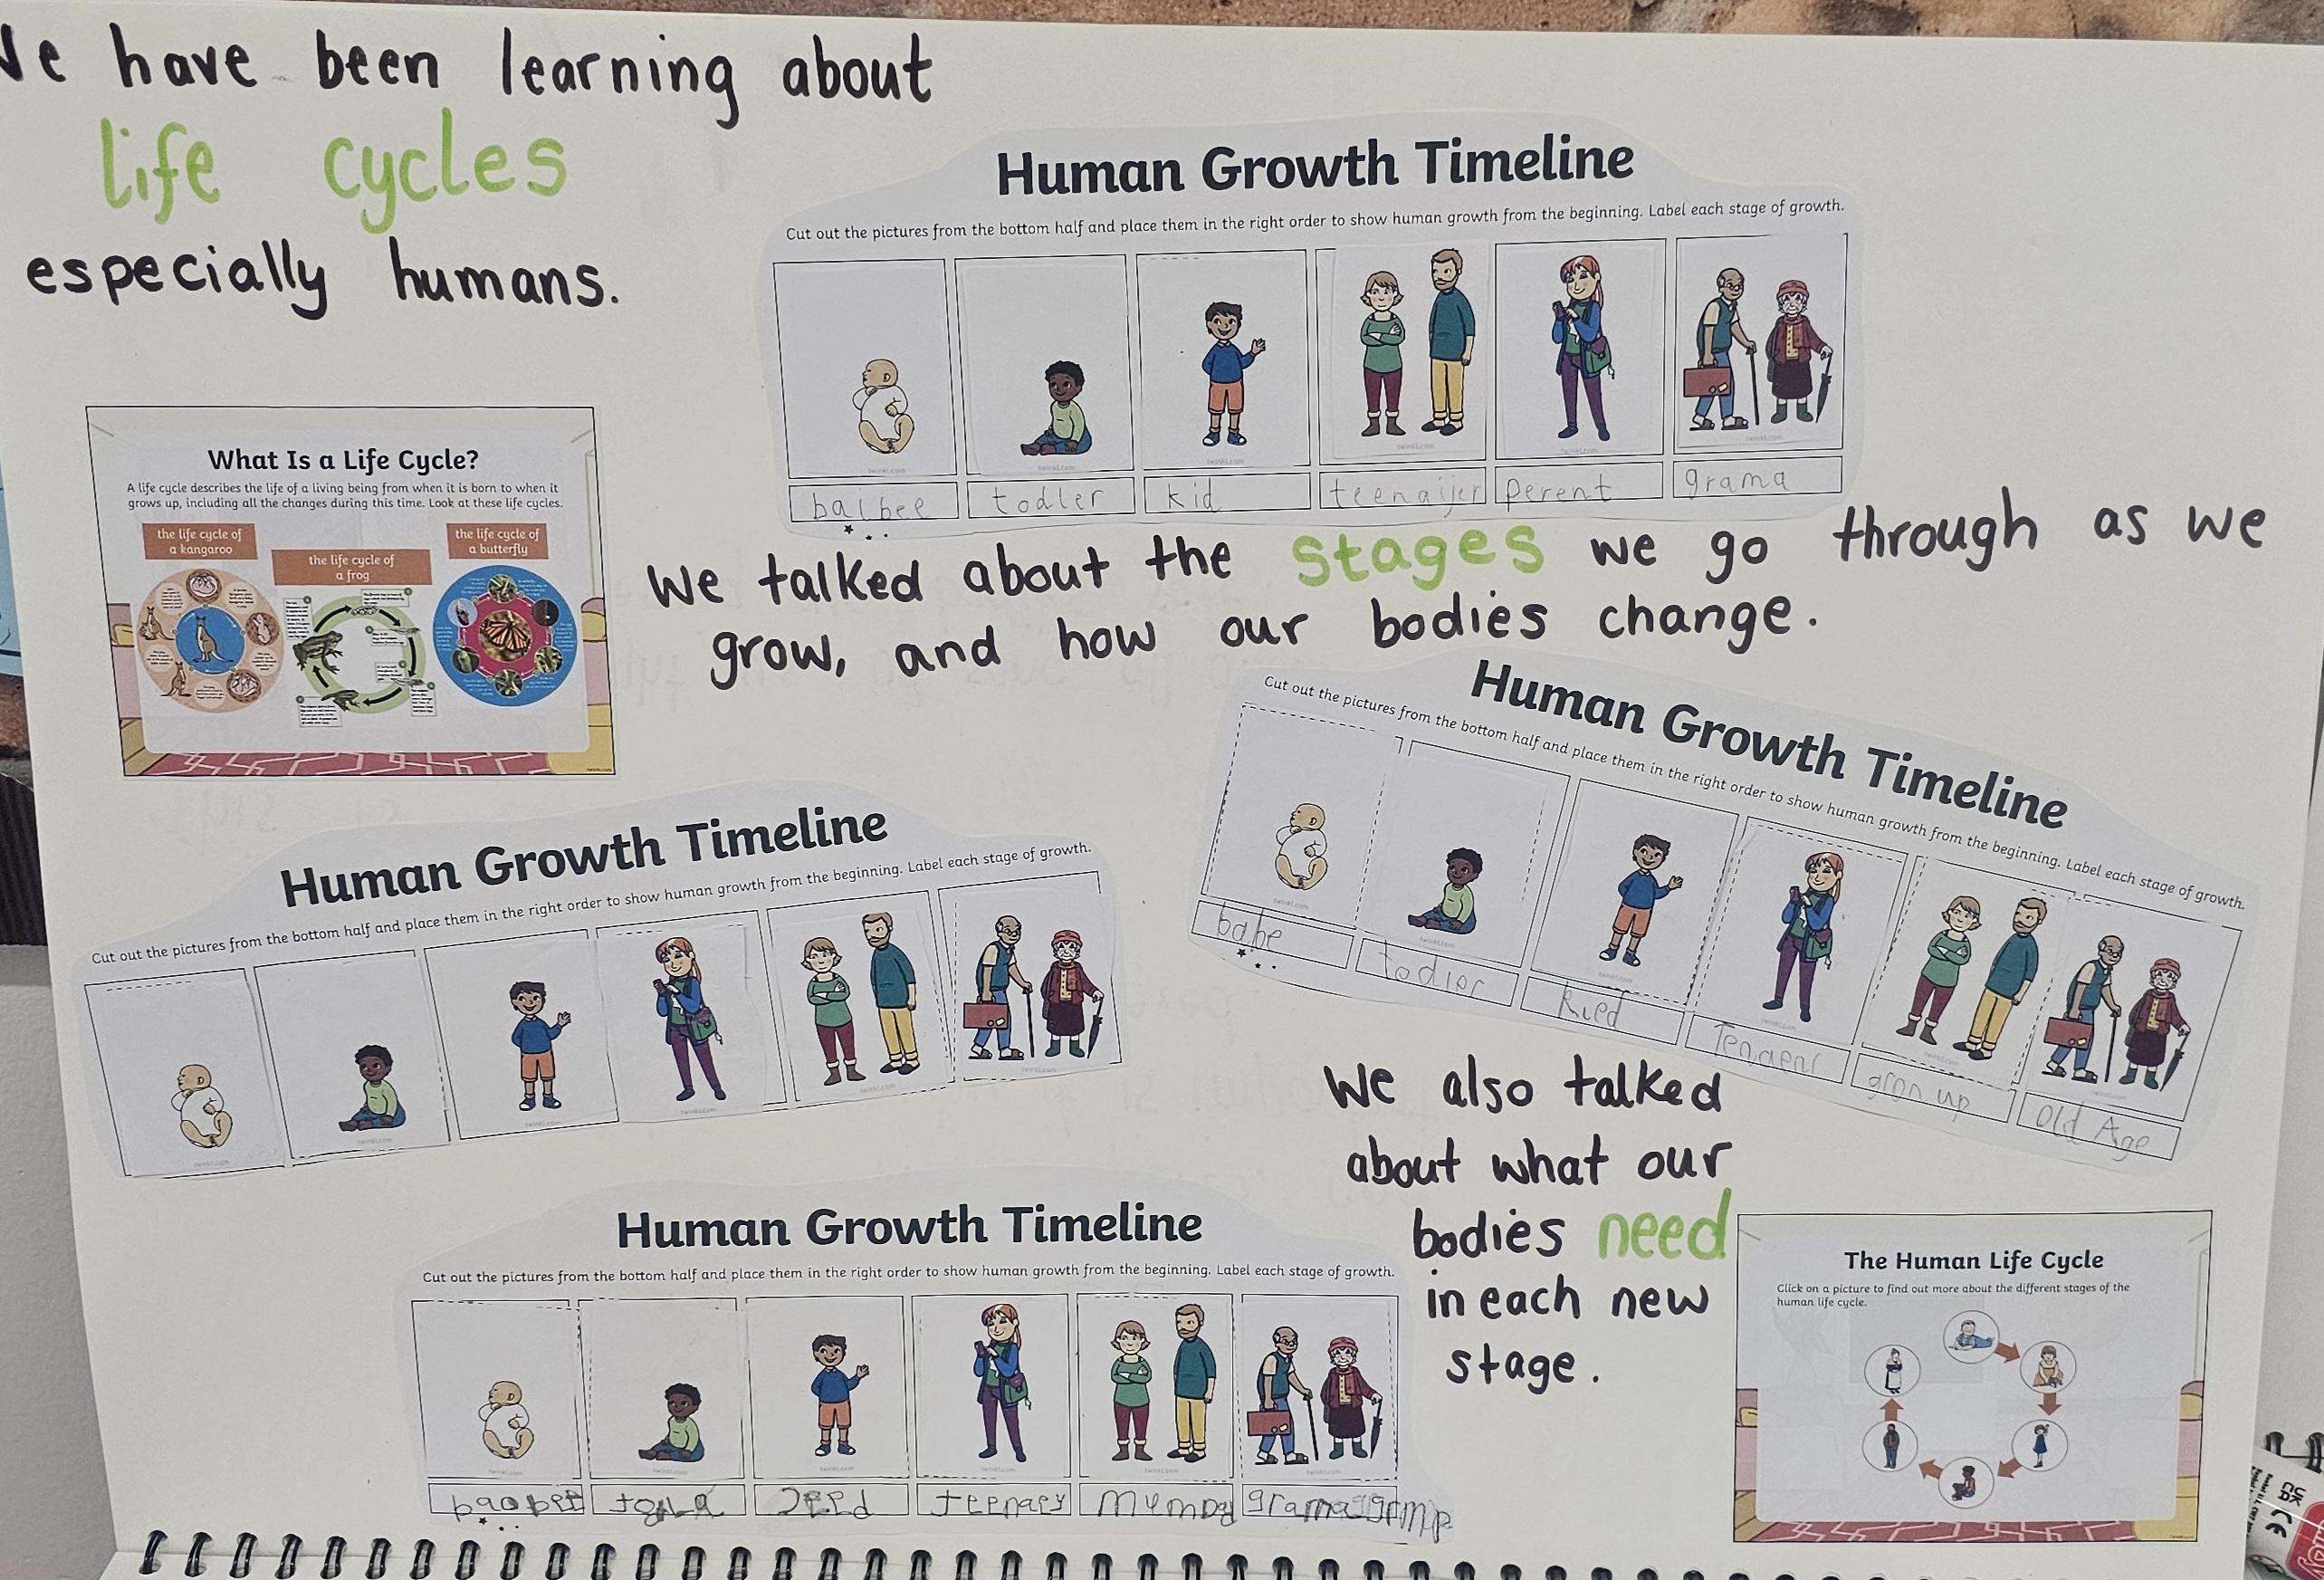 We have been learning about
life cycles
especially humans.
Human Growth Timeline
Cut out the pictures from the bottom half and place them in the right order to show human growth from the beginning. Label each stage of growth.
baibee todler kid teenaijer perent grama
What Is a Life Cycle?
A life cycle describes the life of a living being from when it is born to when it
grows up, including all the changes during this time. Look at these life cycles.
the life cycle of
a kangaroo
the life cycle of
a frog
the life cycle of
a butterfly
We talked about the stages we go through as we
grow, and how our bodies change.
Human Growth Timeline
Cut out the pictures from the bottom half and place them in the right order to show human growth from the beginning. Label each stage of growth.
babe todler kied gron up old Age
Human Growth Timeline
Cut out the pictures from the bottom half and place them in the right order to show human growth from the beginning. Label each stage of growth.
We also talked
about what our
bodies need
in each new
stage.
Human Growth Timeline
Cut out the pictures from the bottom half and place them in the right order to show human growth from the beginning. Label each stage of growth.
The Human Life Cycle
Click on a picture to find out more about the different stages of the
human life cycle.